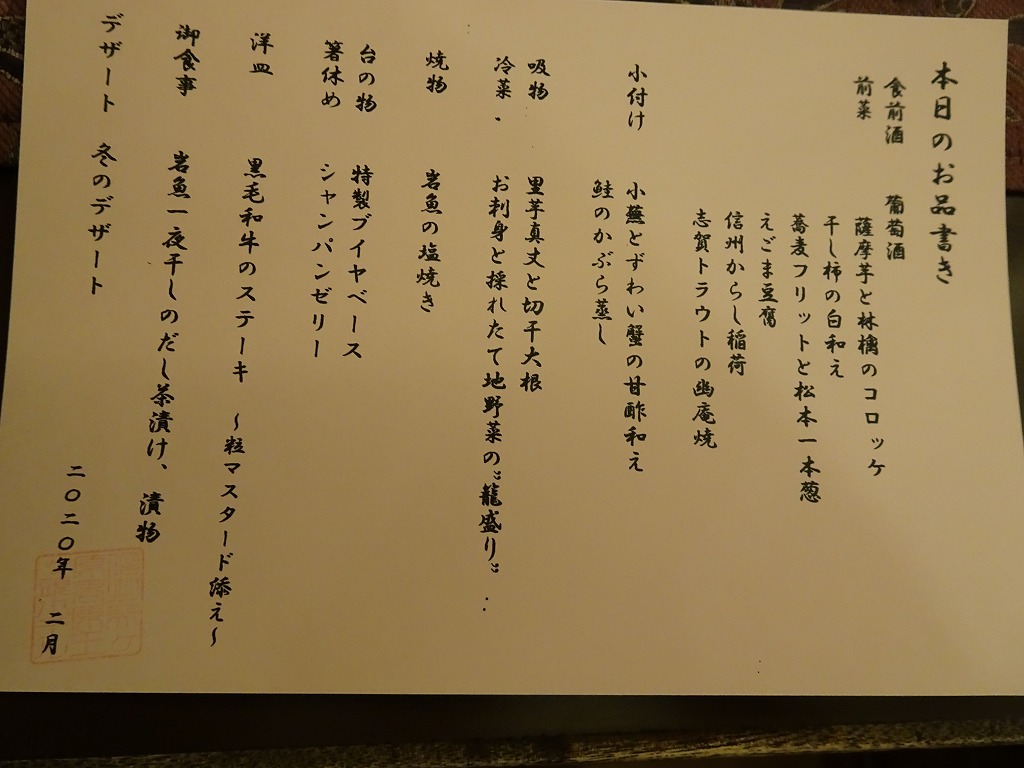 本日のお品書き
食前酒 葡萄酒
前菜 薩摩芋と林檎のコロッケ
干し柿の白和え
蕎麦フリットと松本一本葱
えごま豆腐
信州からし稲荷
志賀トラウトの幽庵焼
小付け 小蕪とずわい蟹の甘酢和え
鮭のかぶら蒸し
吸物 里芋真丈と切干大根
冷菜 お刺身と採れたて地野菜の〝籠盛り〟
焼物 岩魚の塩焼き
台の物 特製ブイヤベース
箸休め シャンパンゼリー
洋皿 黒毛和牛のステーキ ~粒マスタード添え~
御食事 岩魚一夜干しのだし茶漬け、漬物
デザート 冬のデザート
二〇二〇年 二月